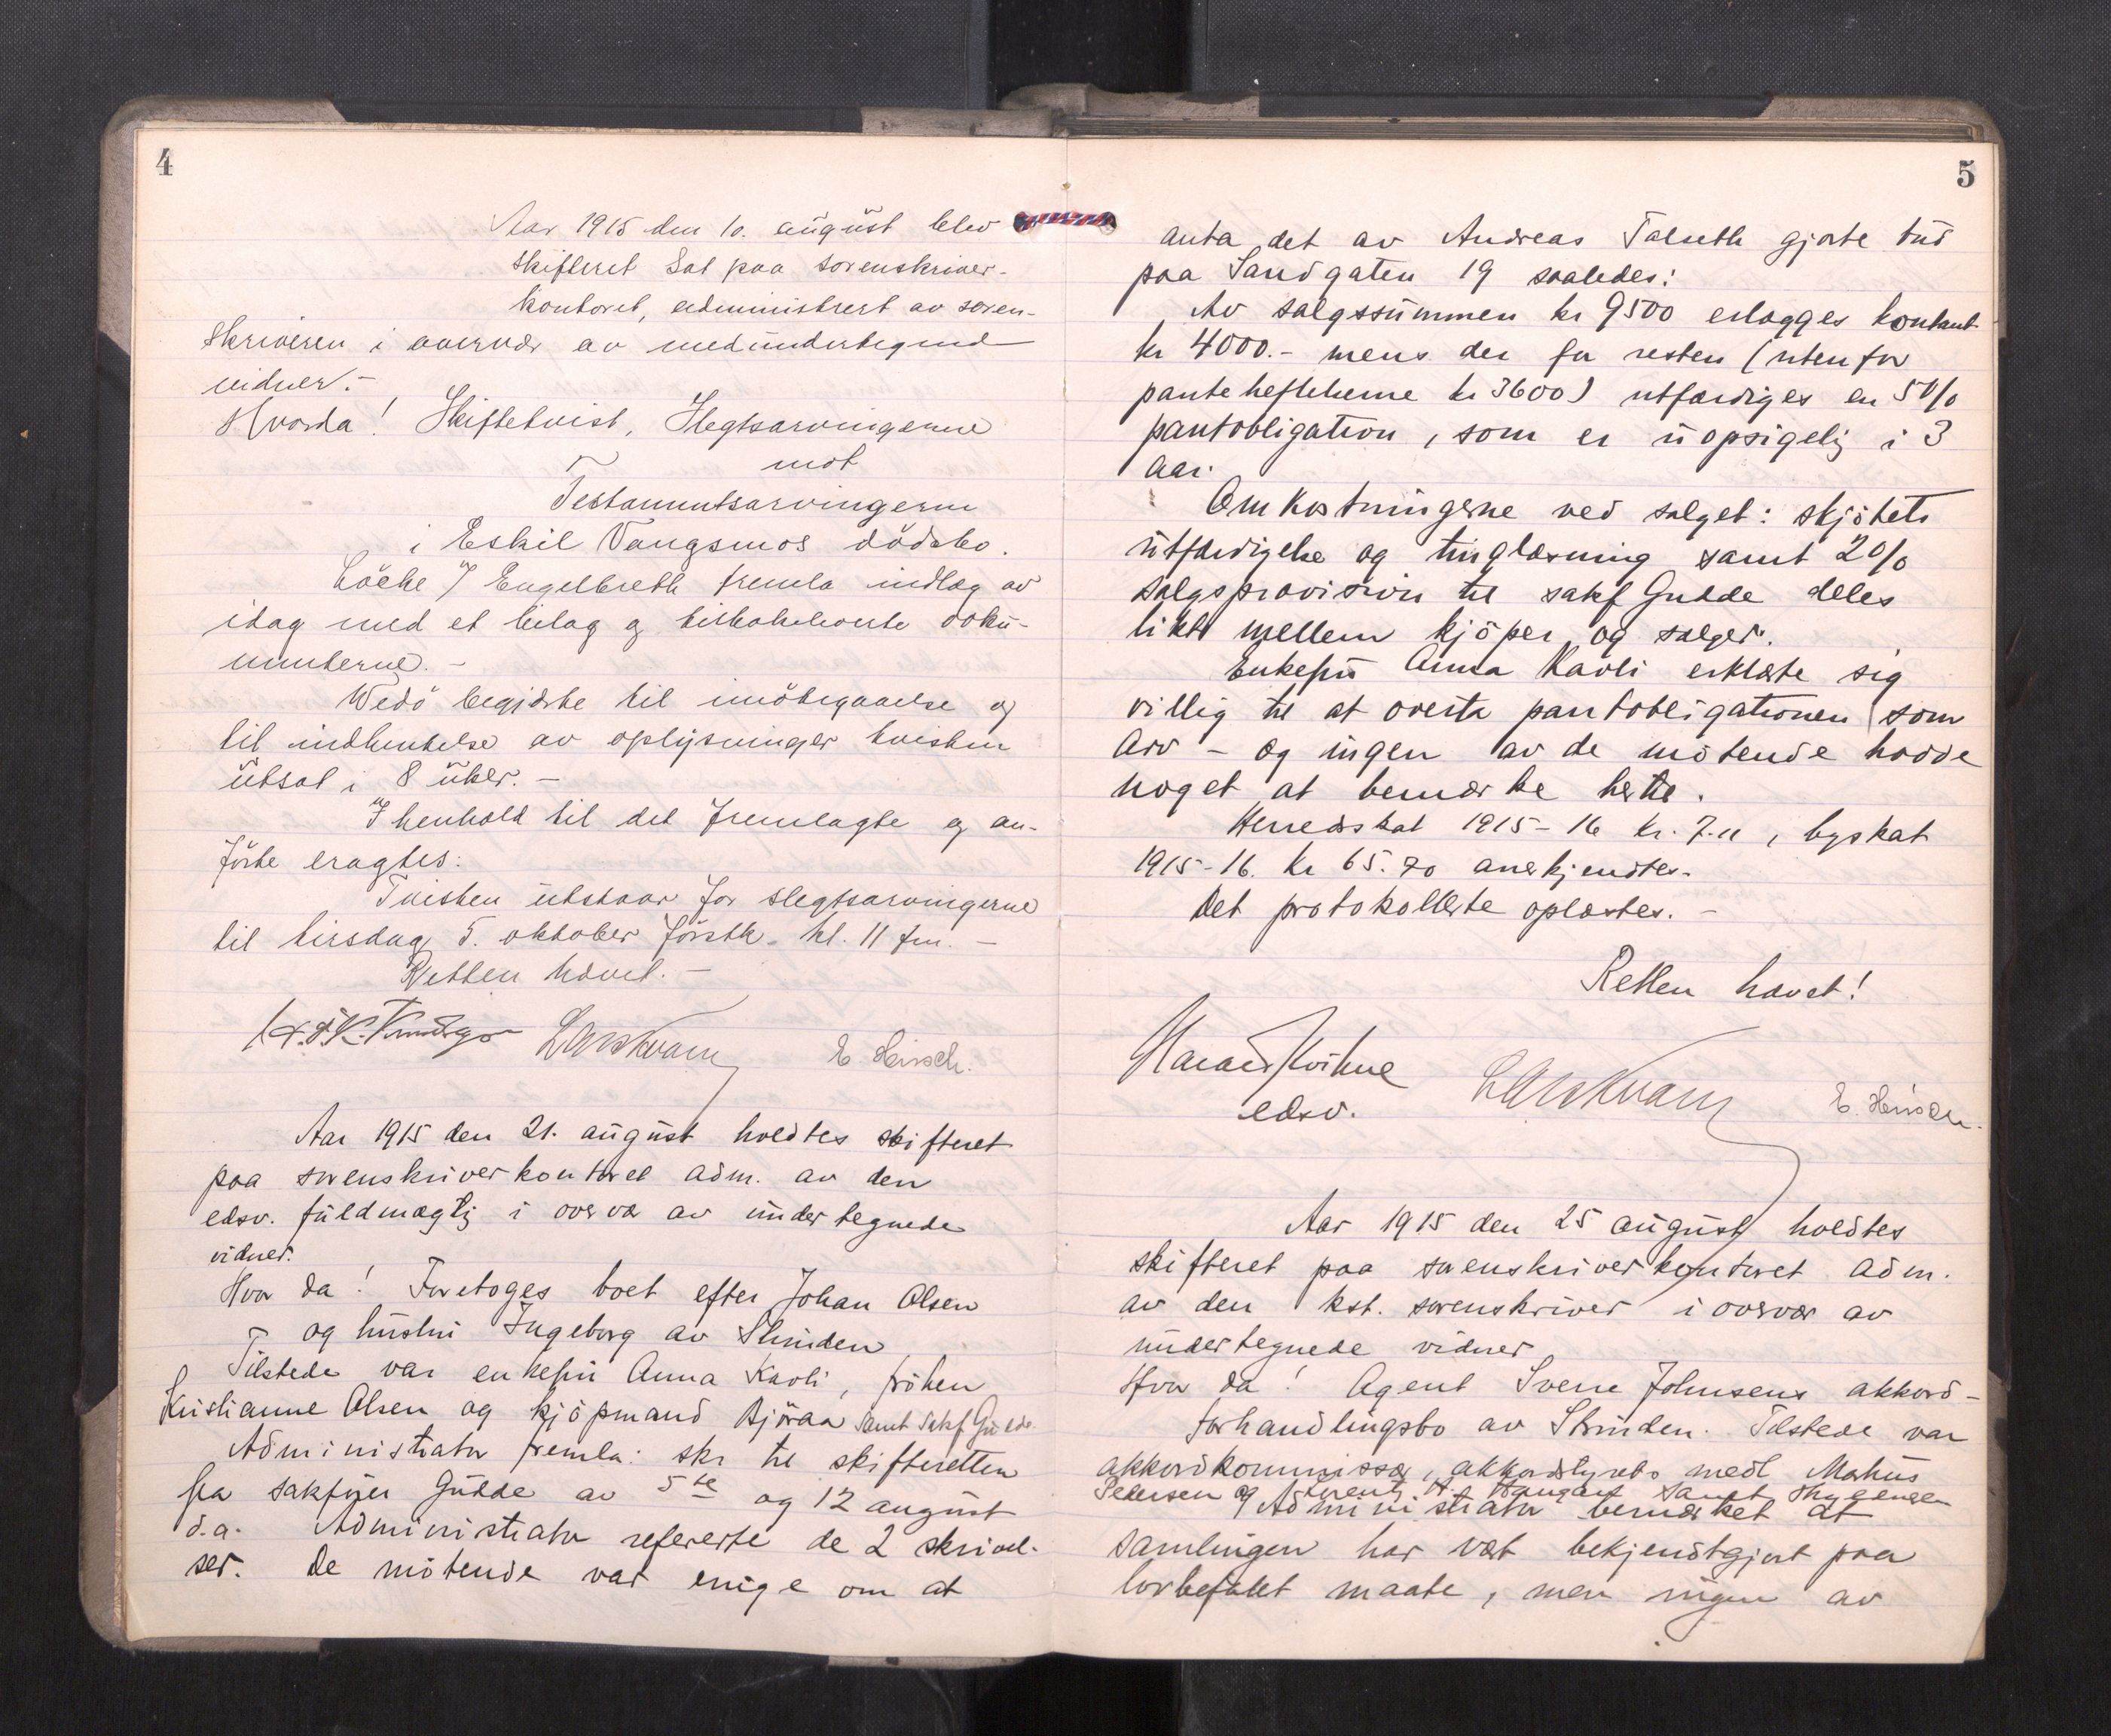 4
Aar 1915 den 10. august blev
skifteret sat paa sorenskriver-
kontoret, administrert av soren-
skriveren i overvær av medundertegnede
vidner.-
Hvorda! Skiftetvist, Slegtsarvingerne
mot
Testamentsarvingerne
i Eskil Vangsmos dödsbo.
Löcke f Engelbreth fremla indlæg av
idag med et bilag og tilbakeleverte doku-
menterne.-
Wedö begjærte til imötegaaelse og
til indhentelse av oplysninger tvisten
utsat i 8 uker.-
I henhold til det fremlagte og an-
förte eragtes:
Tvisten utstaar for slegtsarvingerne
til tirsdag 5. oktober förstk. kl. 11 fm.-
Retten hævet.-
Lars Kvam E. Hirsch.
Aar 1915 den 21. august holdtes skifteret
paa sorenskriverkontoret adm. av den
edsv. fuldmægtig i overvær av undertegnede
vidner.
Hvor da! Foretoges boet efter Johan Olsen
og hustru Ingeborg av Strinden
Tilstede var enkefru Anna Kavli, fröken
Kristianne Olsen og kjöpmand Björaa samt sakf Gudde.
Administrator fremla: skr til skifteretten
fra sakförer Gudde av 5te og 12 august
d.a. Administrator refererte de 2 skrivel-
ser. De mötende var enige om at
5
anta det av Andreas Talseth gjorte bud
paa Sandgaten 19 saaledes:
Av salgssummen kr 9500 erlægges kontant
kr 4000.- mens der for resten (utenfor
panteheftelserne kr 3600) utfærdiges en 5%
pantobligation, som er uopsigelig i 3
aar.
Omkostningerne ved salget: skjötets
utfærdigelse og tinglæsning samt 2%
salgsprovision til sakf Gudde deles
likt mellem kjöper og sælger.
Enkefru Anna Kavli erklærte sig
villig til at overta pantobligationen som
arv - og ingen av de mötende hadde
noget at bemærke hertil.
Herredskat 1915-16 kr. 7.11, byskat
1915-16. kr 65.70 anerkjendtes.
Det protokollerte oplæstes.-
Retten hævet!
Harald Kvihne Lars Kvam E. Hirsch.
edsv.
Aar 1915 den 25 august holdtes
skifteret paa sorenskriverkontoret adm.
av den kst. sorenskriver i overvær av
undertegnede vidner
Hvor da! Agent Sverre Johnsens akkord-
forhandlingsbo av Strinden. Tilstede var
akkordkommissær, akkordstyrets medl Markus
Pedersen og Lorentz A. Haugan samt skyldneren
Administrator bemærket at
samlingen har vært bekjendtgjort paa
lovbefalet maate, men ingen av